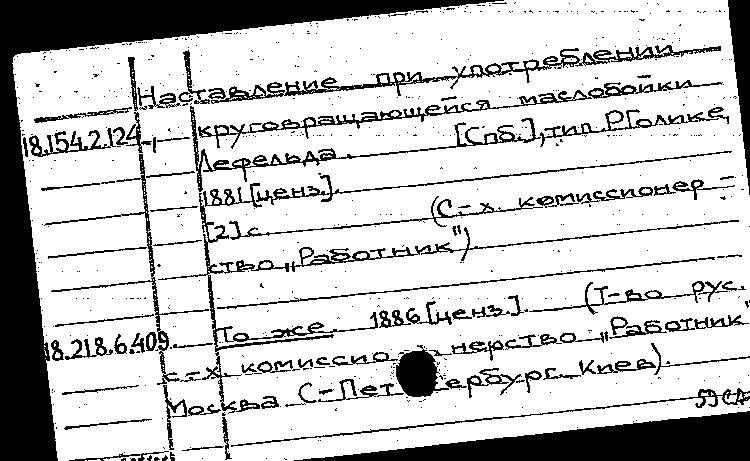 Наставление при употреблении
18.154.2.124 круговращающейся маслобойки
Лефельда. [Спб.], тип Р Голике,
1881 [ценз.].
[2] с. (С.-х. комиссионер-
ство „Работник").
18.218.6.409. То же. 1886 [ценз.]. (Т-во рус.
с.-х. комиссионерство „Работник"
Москва С-Петербург. Киев).